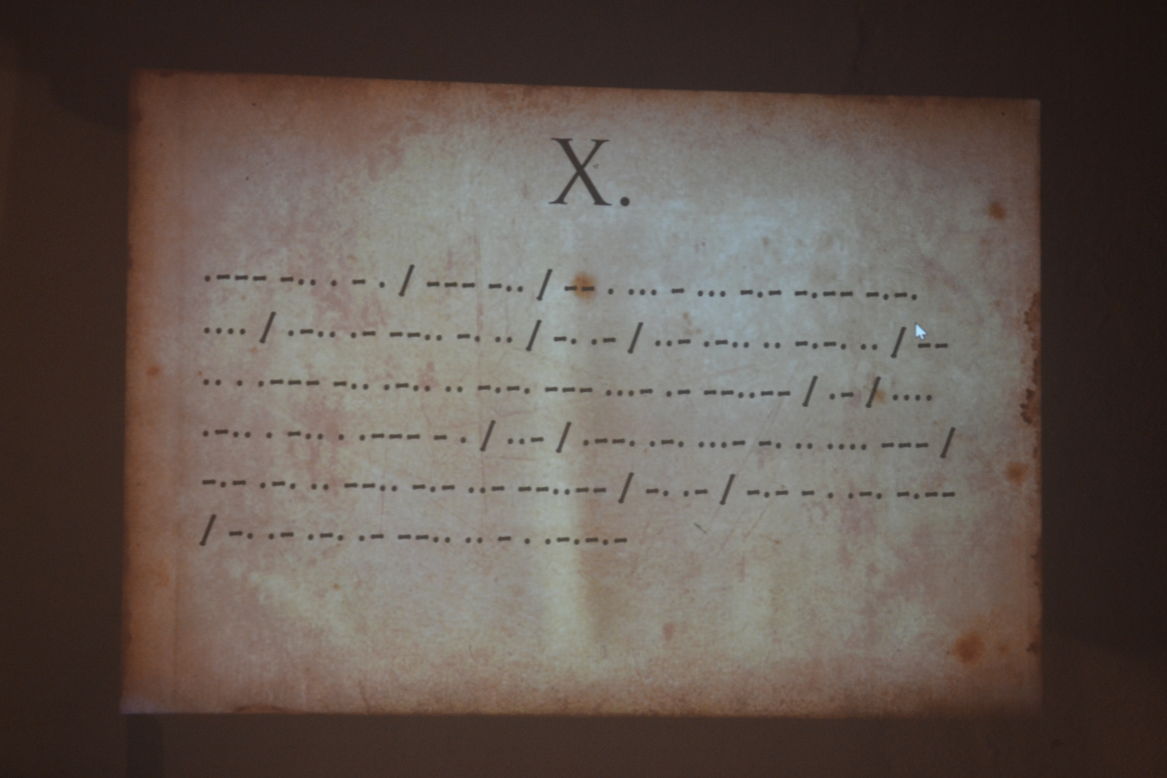 X.
.--- -.. . - . / --- -.. / -- . ... - ... -.- -.-- -.-.
.... / .-.. .- --.. -. .. / -. .- / ..- .-.. .. -.-. .. / --
.. . .--- -.. .-.. .. -.-. --- ...- .- --..-- / .- / ....
.-.. . -.. . .--- - . / ..- / .--. .-. ...- -. .. .... --- /
-.- .-. .. --.. -.- ..- --..-- / -. .- / -.- - . .-. -.--
/ -. .- .-. .- --.. .. - . .-.-.-